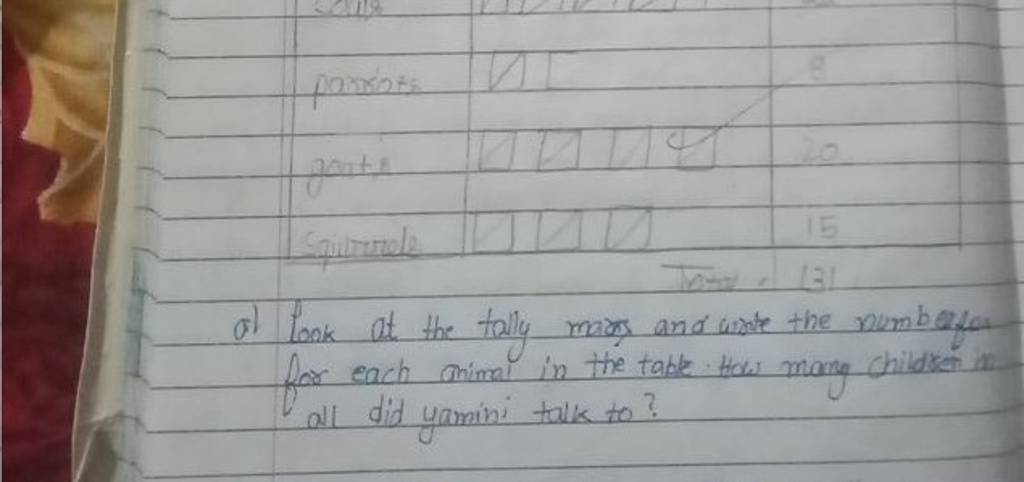 parrots 8
goats 20
Squirrels 15
Total = 131
a) look at the tally marks and write the number for
for each animal in the table. How many children in
all did yamini talk to?